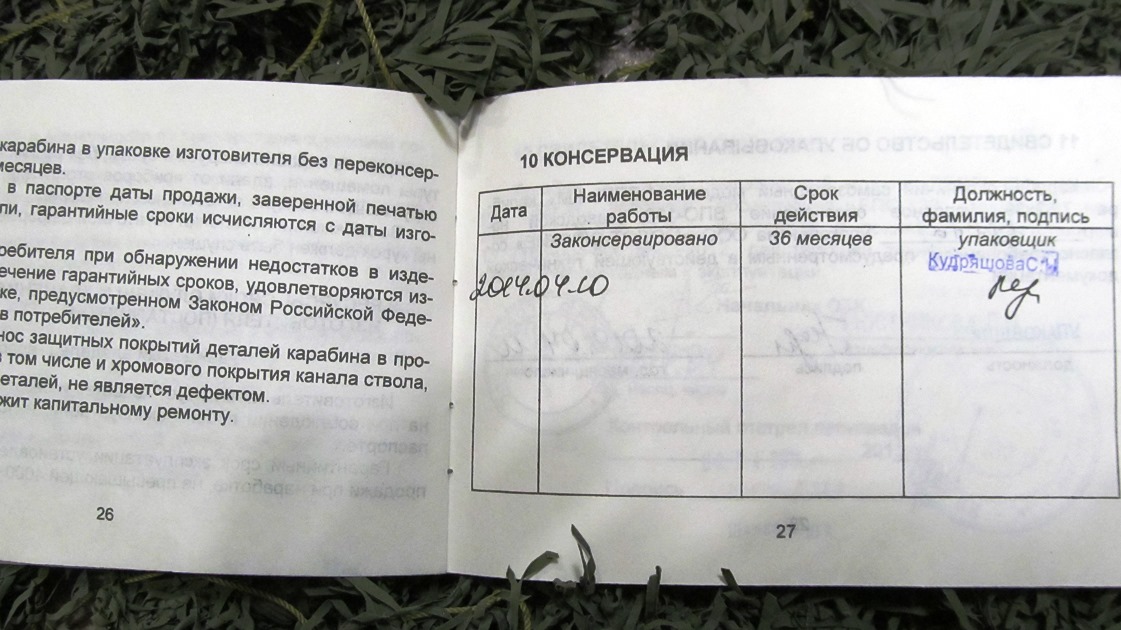 карабина в упаковке изготовителя без переконсер-
месяцев.
в паспорте даты продажи, заверенной печатью
ли, гарантийные сроки исчисляются с даты изго-
ребителя при обнаружении недостатков в изде-
ечение гарантийных сроков, удовлетворяются из-
ке, предусмотренном Законом Российской Феде-
в потребителей».
нос защитных покрытий деталей карабина в про-
в том числе и хромового покрытия канала ствола,
еталей, не является дефектом.
жит капитальному ремонту.
26
10 КОНСЕРВАЦИЯ
Дата
Наименование
работы
Срок
действия
Должность,
фамилия, подпись
Законсервировано
36 месяцев
упаковщик
Кудряшова С.
2014.04.10
27